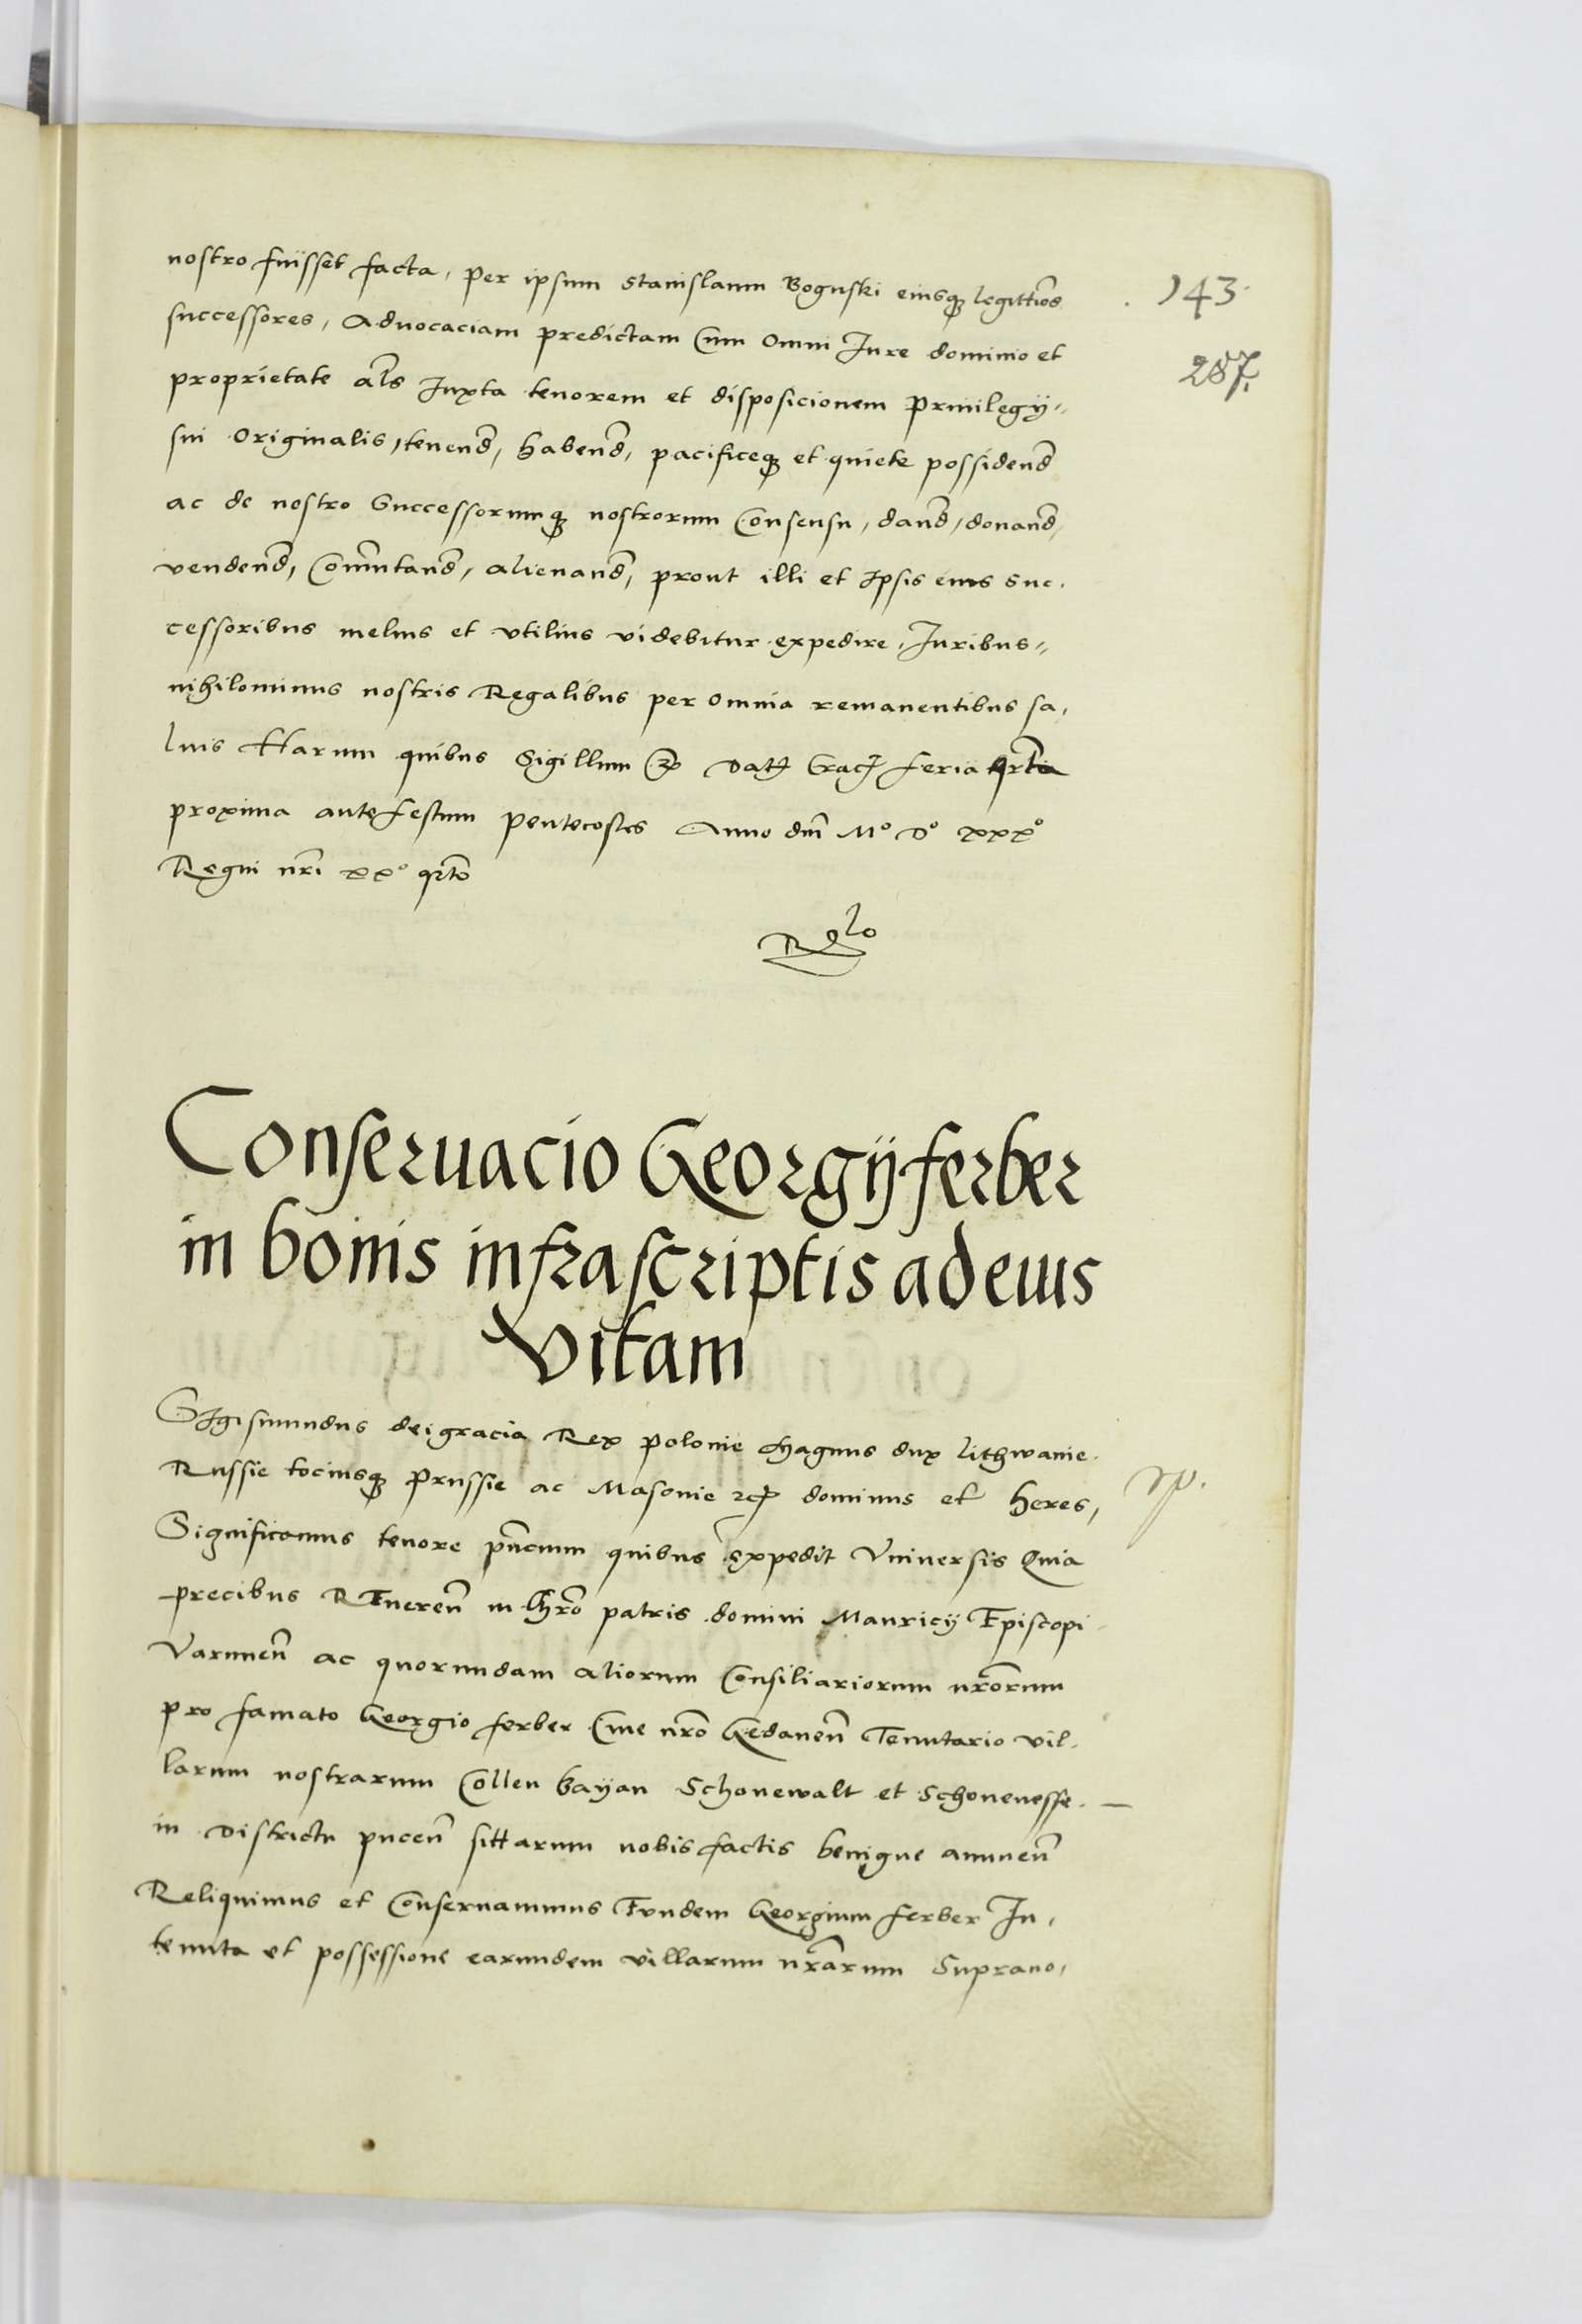 nostro fuisset facta, per ipsum Stanislaum Boguski eiusq legittios
143
successores, Aduocaciam predictam Cum omni Iure dominio et
287
proprietate als Iuxta tenorem et disposicionem Priuilegij
sui originalis, tenend, habend, pacificeq et quiete possidend
ac de nostro Successorumq nostrorum Consensu, dand, donand,
vendend, Commutand, alienand, prout illi et Ipsis eius suc,
cessoribus melius et vtilius videbitur expedire, Iuribus
nihilominus nostris Regalibus per omnia remanentibus sa,
luis Harum quibus Sigillum Dat Crac feria qrta
proxima ante festum pentecostes Anno dni Mo Do xxxo
Regni nri xxo qrto
Rglo
Conseruacio Georgij ferber
in bonis infrascriptis ad eius
vitam
Sigismundus dei gracia Rex Polonie Magnus dux Lithwanie
Russie tociusq Prussie ac Masouie rc dominus et Heres,
Significamus tenore pncium quibus expedit Vniuersis Quia
precibus Reueren in Chro patris domini Mauricij Episcopi
Varmien ac quorundam aliorum Consiliariorum nrorum
pro famato Georgio ferber Ciue nro Gedanen Tenutario vil,
larum nostrarum Collen Bayan Schonewalt et Schonenesse
in Districtu pucen sittarum nobis factis benigne annuen
Reliquimus et Conseruamus Eundem Georgium ferber In,
tenuta et possessione earundem villarum nrarum Suprano,